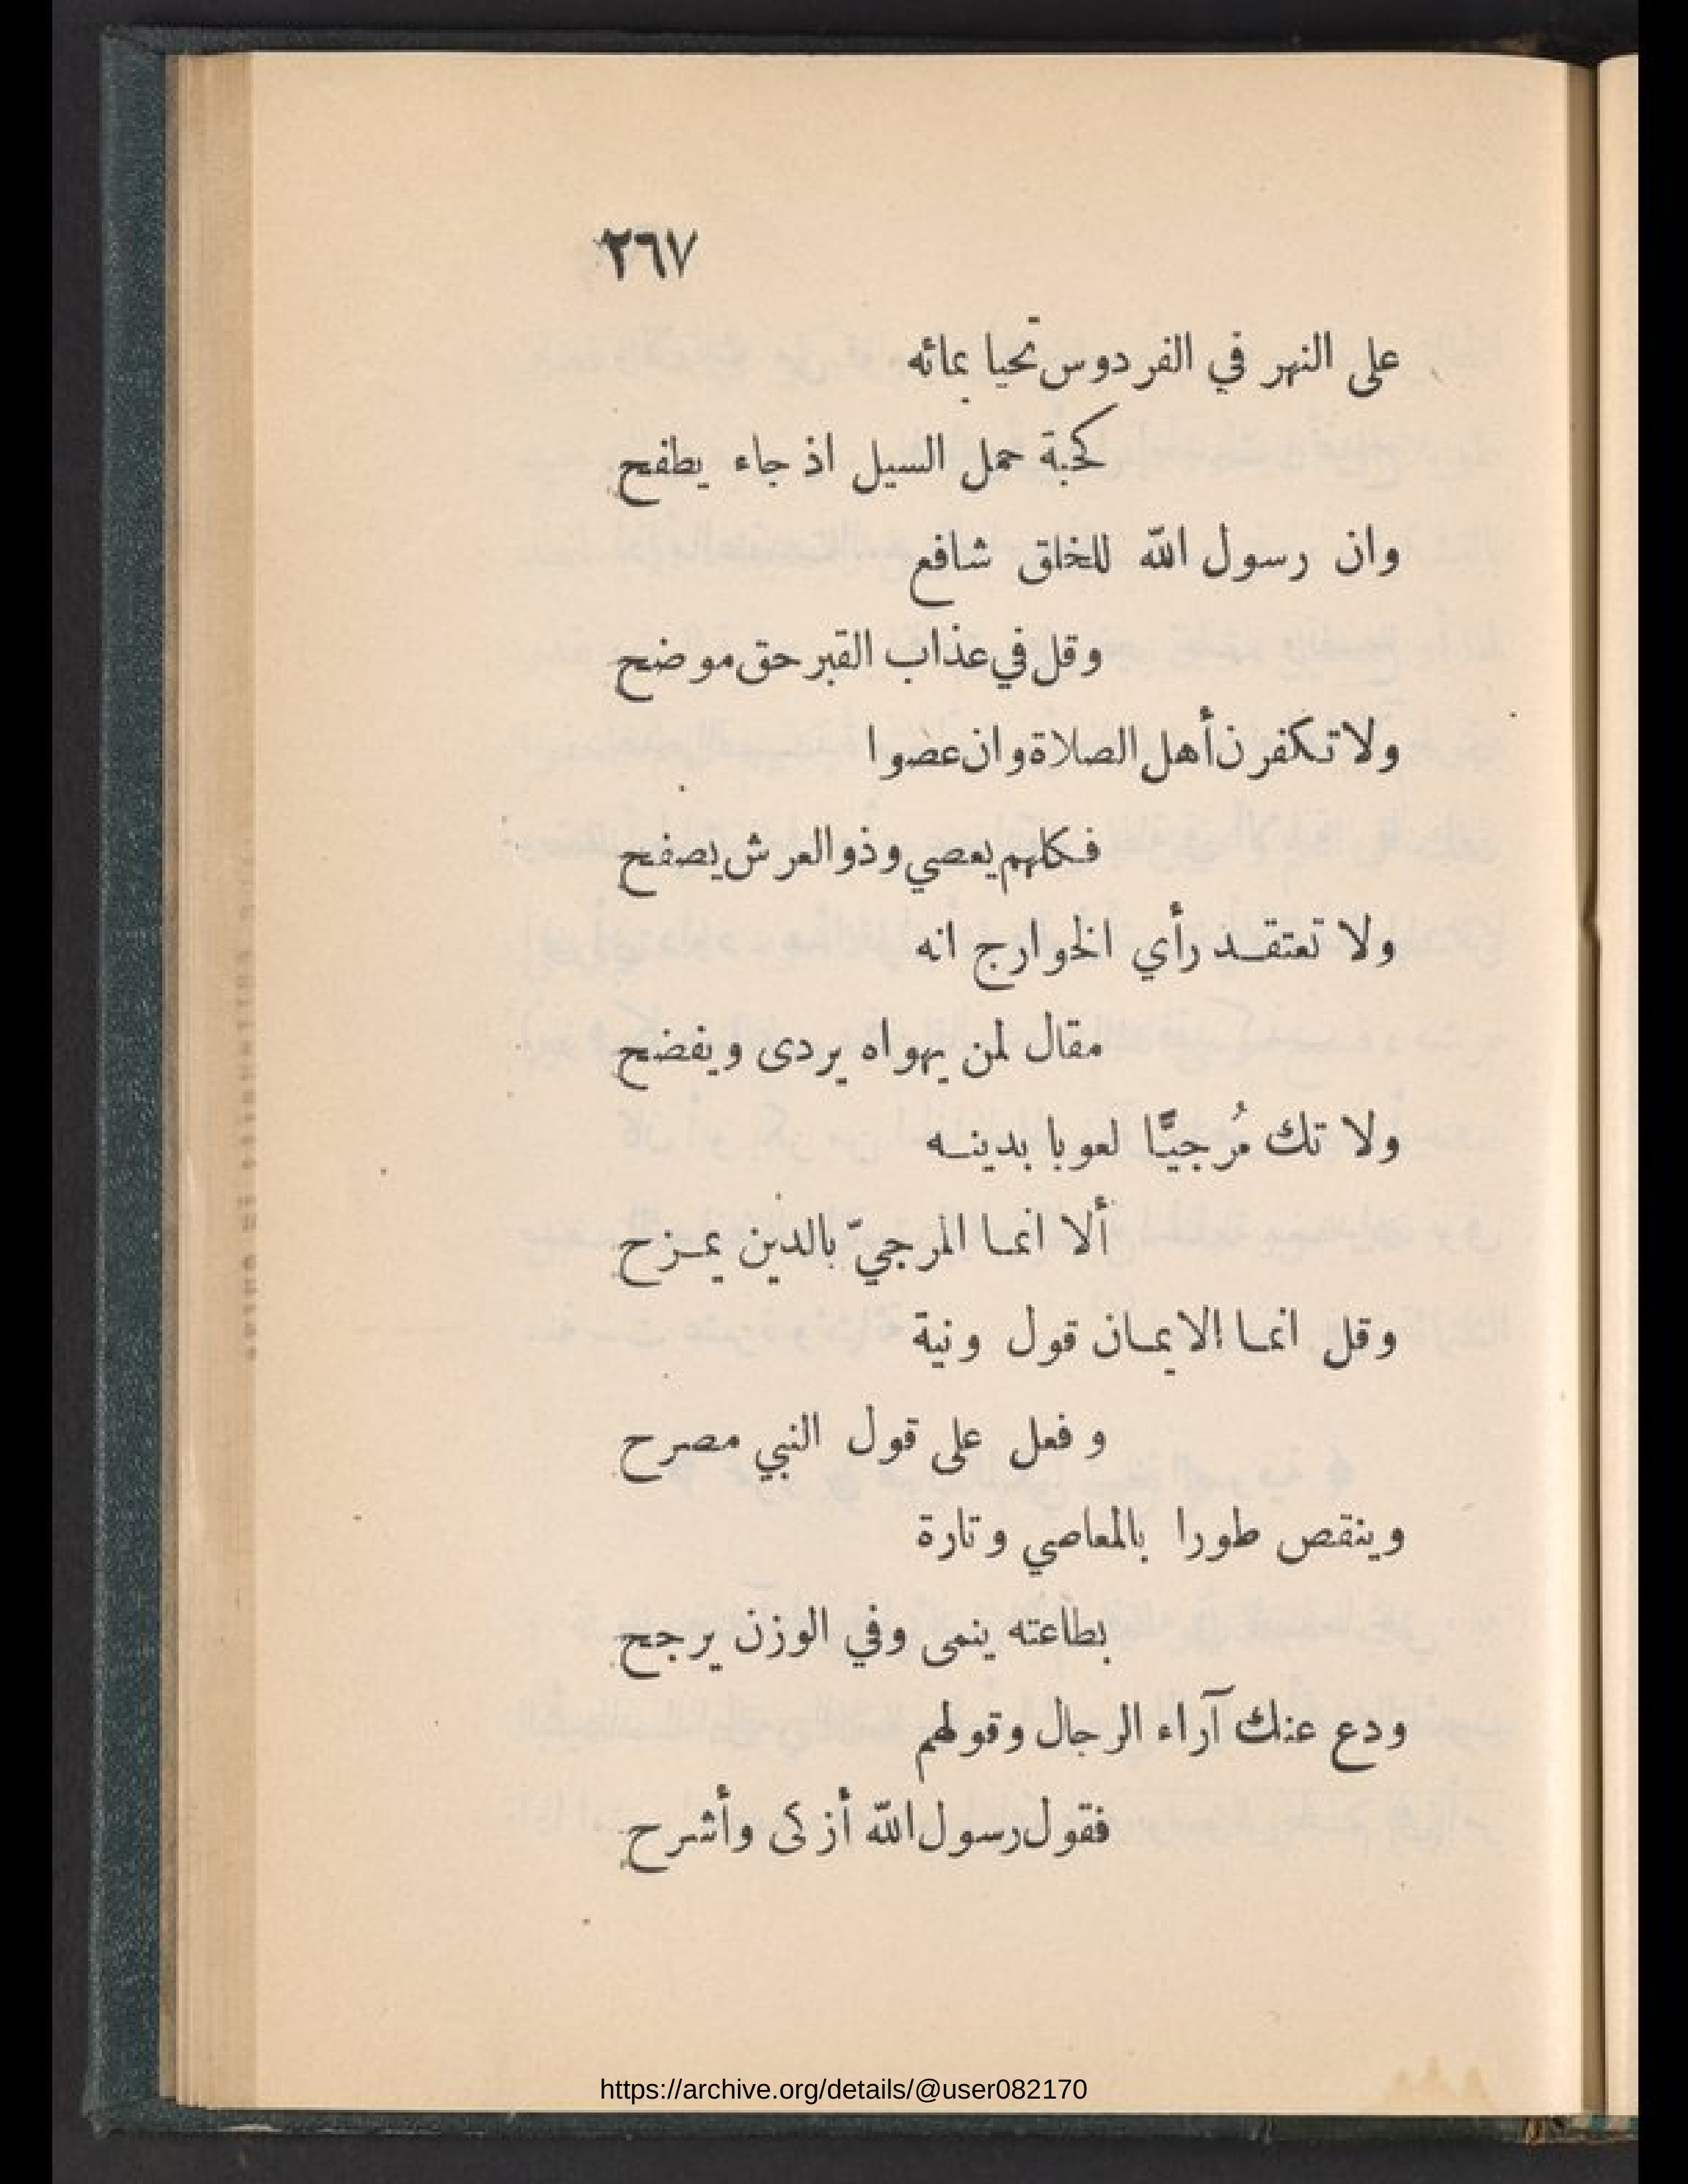 ٢٦٧
على النهر في الفردوس تحيا بمائه
كحبة حمل السيل اذ جاء يطفح
وان رسول الله للخلق شافع
وقل في عذاب القبر حق موضح
ولا تكفرن أهل الصلاة وان عضوا
فكلهم يعصي وذو العرش يصفح
ولا تعتقد رأي الخوارج انه
مقال لمن يهواه يردى ويفضح
ولا تك مُرجيًّا لعوبا بدينه
ألا انما المرجيّ بالدين يمزح
وقل انما الايمان قول ونية
وفعل على قول النبي مصرح
وينقص طورا بالمعاصي وتارة
بطاعته ينمى وفي الوزن يرجح
ودع عنك آراء الرجال وقولهم
فقول رسول الله أزكى وأشرح
https://archive.org/details/@user082170